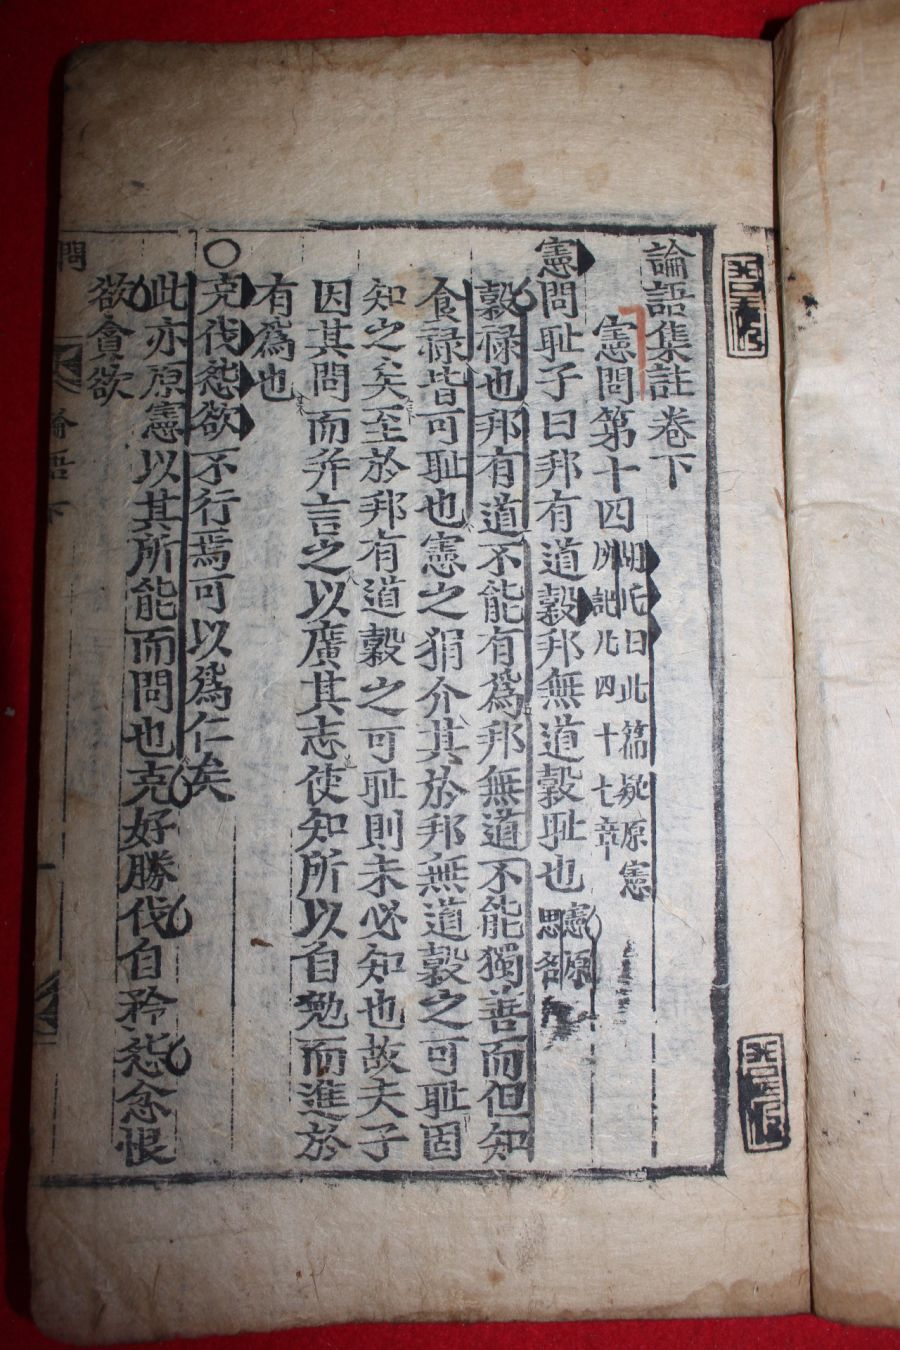 論語集註卷下
憲問第十四 胡氏曰此篇疑原憲
所記凡四十七章
憲問恥子曰邦有道穀邦無道穀恥也 憲原
思名
穀祿也邦有道不能有爲邦無道不能獨善而但知
食祿皆可恥也憲之狷介其於邦無道穀之可恥固
知之矣至於邦有道穀之可恥則未必知也故夫子
因其問而幷言之以廣其志使知所以自勉而進於
有爲也
○克伐怨欲不行焉可以爲仁矣
此亦原憲以其所能而問也克好勝伐自矜怨忿恨
欲貪欲
問
論語下